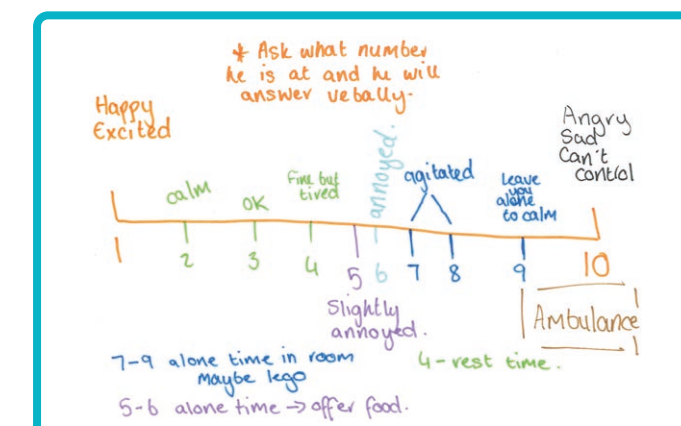 * Ask what number
he is at and he will
answer vebally.
Happy
Excited
Angry
Sad
Can't
control
calm
OK
Fine but
tired
annoyed.
agitated
Leave
you
alone
to calm
1 2 3 4 5 6 7 8 9 10
Slightly
annoyed.
Ambulance
7-9 alone time in room
maybe lego
4 - rest time.
5-6 alone time → offer food.